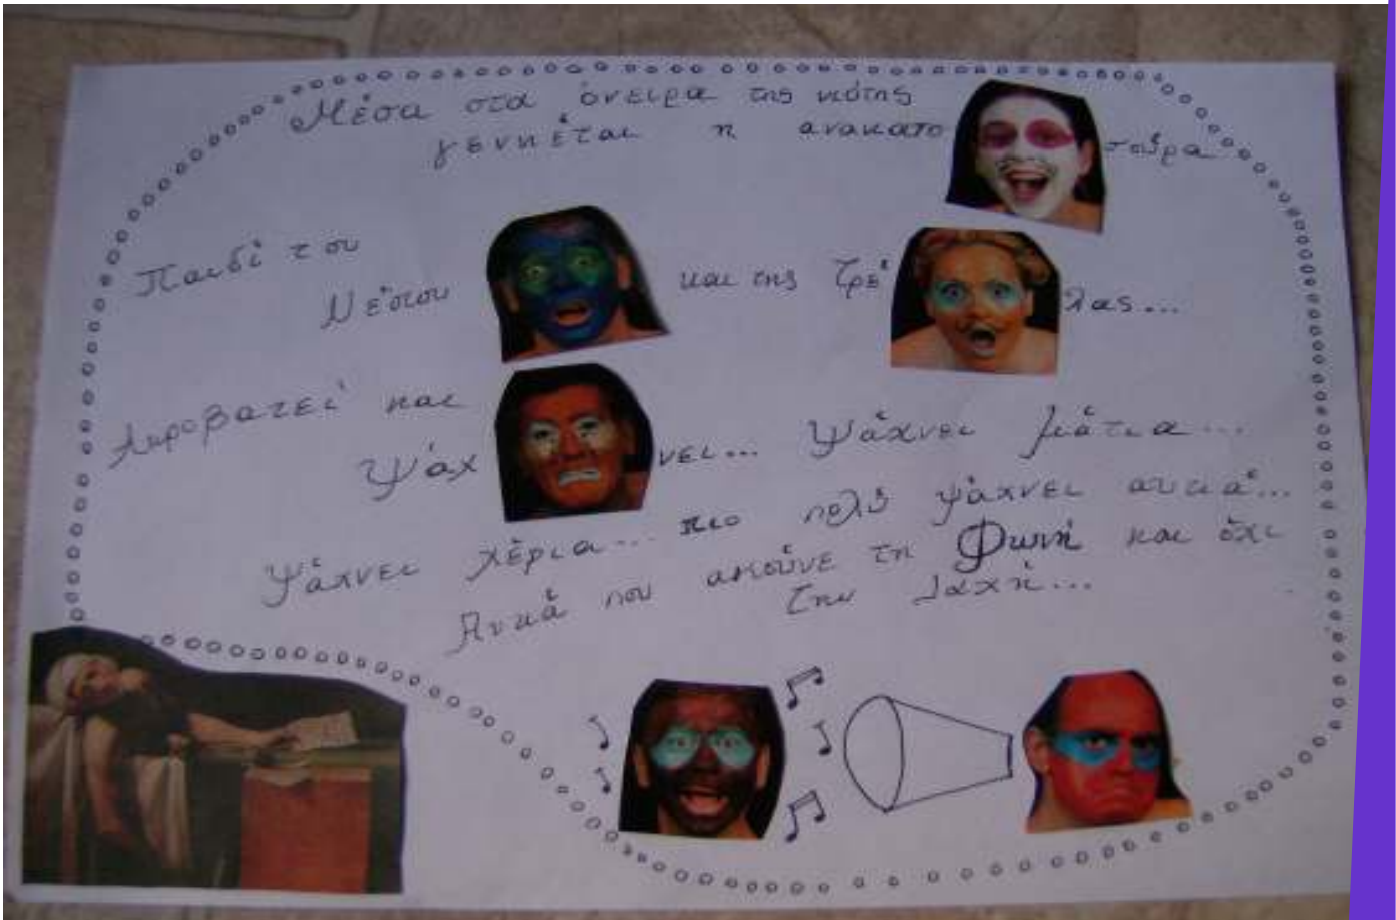 Μέσα στα όνειρα της νιότης
γεννιέται η ανακατο σούρα
Παιδί του
Νέστου και της Τρέ λας...
Ακροβατεί και
Ψάχ νει... Ψάχνει μάτια...
Ψάχνει χέρια... πιο πολύ ψάχνει αυτιά...
Αυτιά που ακούνε τη Φωνή και όχι
την Ιαχή...